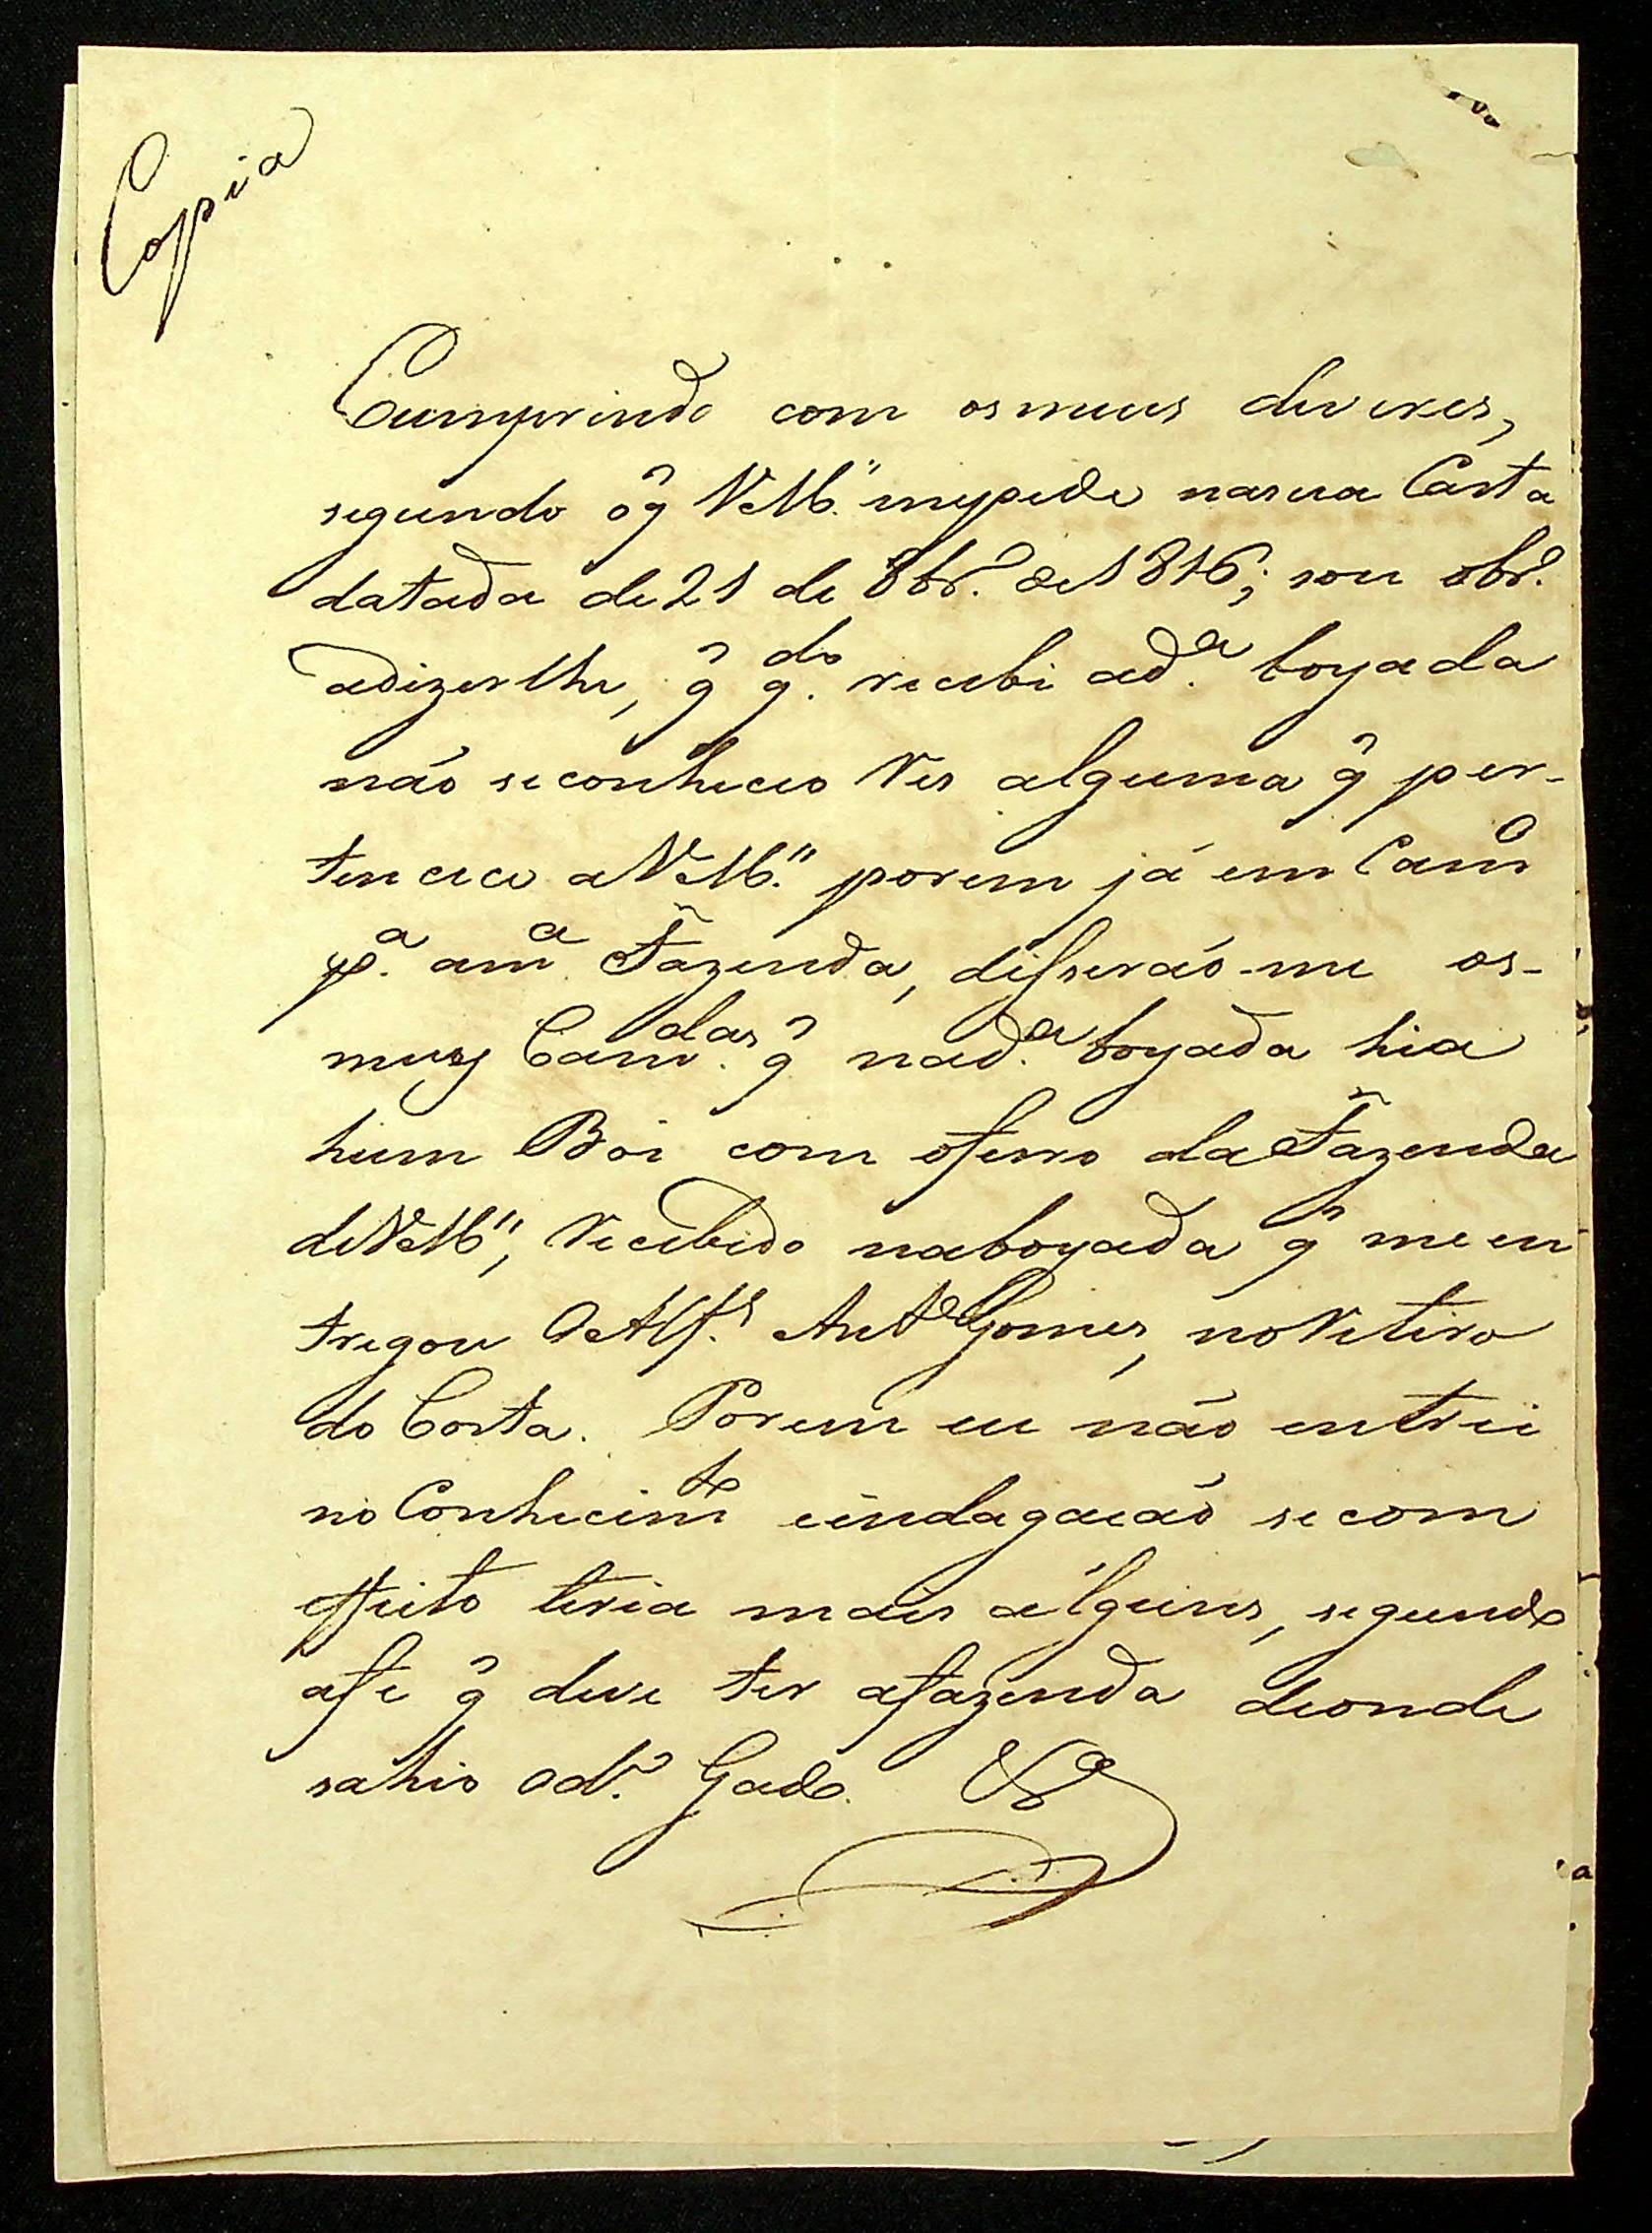 Copia
Cumprindo com os meus deveres,
segundo o q̃ VM.ce me pede na sua Carta
datada de 21 de 8br.º de 1816; sou obr.º
a dizer lhe, q̃ q.do recebi a d.ª boyada
não se conheceo Res alguma q̃ per-
tencece a VM.ce porem já em Camº
p.ª a m.ª Fazenda, disserão-me os-
meus Camr.das q̃ na d.ª boyada hia
hum Boi com o ferro da Fazenda
de VM.ce, Recebido na boyada q̃ me en
tregou O Alf.s Ant.º Gomes, no Retiro
do Costa. Porem eu não entrei
no Conhecim.to e indagacão se com
effeito teria mais alguns, segundo
a fe q̃ deve ter a fazenda de onde
sahio o d.º Gado.